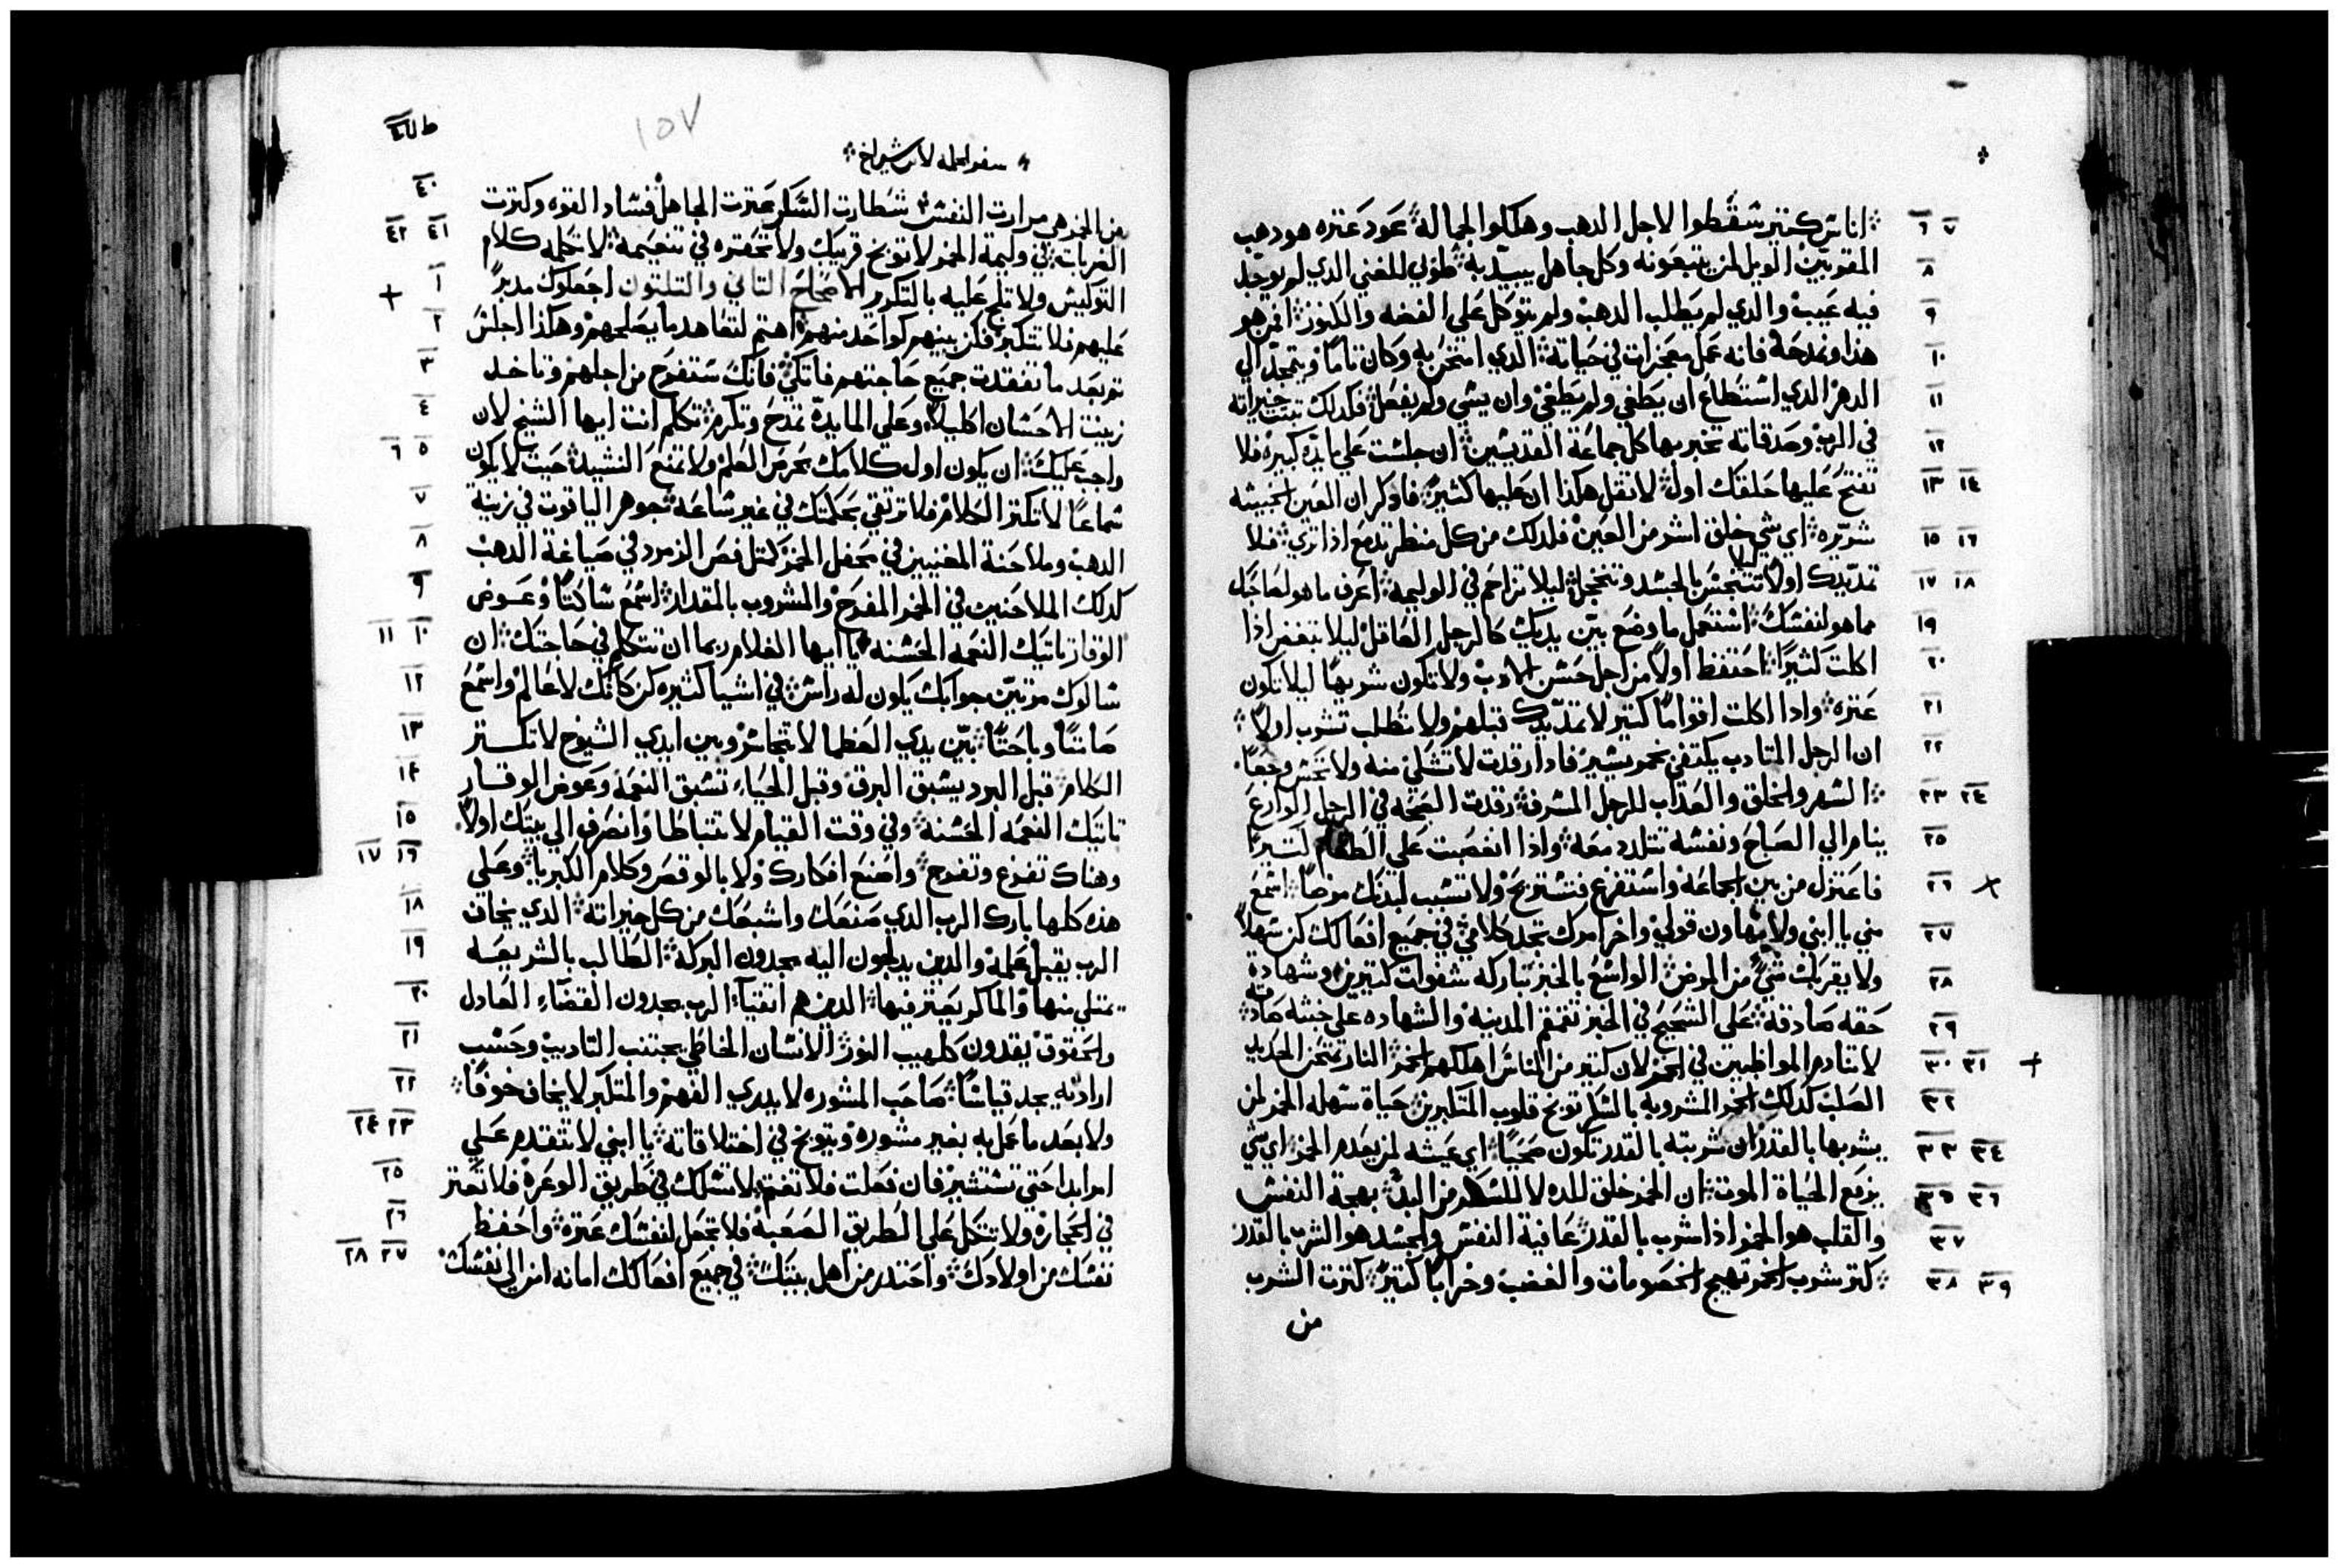 ٦ ٧ اناس كتير سقطوا لاجل الدهب وهلكوا لجماله عود عتره هو دهب
٨ المقربين الويل لمن يتبعونه وكل جاهل يبيد به طوبي للغني الدي لم يوجد
٩ فيه عيب والدي لم يطلب الدهب ولم يتوكل علي الفضه والكنوز من هو
١٠ هذا ونمدحه فانه عمل معجزات في حياته الدي امتحن به وكان تاما ويتمجد الي
١١ الدهر الدي استطاع ان يطغي ولم يطغي وان يسي ولم يفعل فلدلك تبتت خيراته
١٢ في الرب وصدقاته تخبر بها كل جماعة القديسين ان جلست علي مايده كبيره فلا
١٣ ١٤ تفتح عليها حلقك اول لا تقل هكذا ان عليها كثير فادكر ان العين الخبيثه
١٥ ١٦ شريره اي شي خلق اشر من العين فلدلك من كل منظر تدمع اذا تري فلا
١٧ ١٨ تمد يدك اولا لئلا تتنجس بالحسد وتتخجل ليلا تزاحم في الوليمه اعرف ما هو لصاحبك
١٩ مما هو لنفسك استعمل ما وضع بين يديك كالرجل العاقل ليلا تبغض اذا
٢٠ اكلت كثيرا احتفظ اولا من اجل حسن الادب ولا تكون شرها ليلا تكون
٢١ عتره واذا اكلت اقواما كتير لا تمد يدك قبلهم ولا تطلب تشرب اولا
٢٢ ان الرجل المتادب يكتفي بخمر يسير فاذا رقدت لا تشلي منه ولا تحس وجعا
٢٣ ٢٤ السهر والخلق والعداب للرجل المسرف رقدت الصحه في الرجل الوارع
٢٥ ينام الي الصباح ونفسه تتلدد معه واذا انغصبت علي الطعام كتيرا
٢٦ + فاعتزل من بين الجماعه واستفرغ فتستريح ولا تسبب لبدنك مرضا اسمع
٢٧ مني يا ابني ولا تهاون قولي واخر امرك تجد كلامي في جميع افعالك كن سهلا
٢٨ ولا يقربك شي من المرض الواسع بالخبز تباركه شفوات كتيرين وشهادة
٢٩ حقه صادقه علي الشحيح في الخبز تقمقم المدينه والشهاده علي خبثه صادقه
٣٠ ٣١ + لا تنادم المواظبين في الخمر لان كتير من الناس اهلكهم الخمر النار تمتحن الحديد
٣٢ الصلب كدلك الخمر المشروبه بالسكر توبخ قلوب المتكبرين حياة سهله الخمر لمن
٣٣ ٣٤ يشربها بالقدر ان شربته بالقدر تكون صحيا اي عيشه لمن يعدم الخمر اي شي
٣٥ ٣٦ يزمع الحياة الموت ان الخمر خلق للده لا للسكر من البدء بهجة النفس
٣٧ والقلب هو الخمر اذا شرب بالقدر عافية النفس والجسد هو الشرب بالقدر
٣٨ ٣٩ كتر شرب الخمر تهيج الخصومات والغضب وخرابا كتير كترت الشرب
من
١٥٧
سفر الحكمه لابن شيراخ
٤٠ من الخمر هي مرارت النفس شطارت السكر عترت الجاهل فساد القوه وكترت
٤١ ٤٢ الضربات في وليمة الخمر لا توبخ قريبك ولا تحقره في تنعيمه لا تكلمه كلام
١ + التوليس ولا تلح عليه بالتكرير الاصحاح التاني والتلتون اجعلوك مدبرا
٢ عليهم فلا تتكبر فكن بينهم كواحد منهم اهتم لتعاهد ما يصلحهم وهكذا اجلس
٣ تم بعد ما تفقدت جميع حاجتهم فاتكي فانك ستفرح من اجلهم وتاخد
٤ زينت الاحسان اكليلا وعلي المايده تمدح وتكرم تكلم انت ايها الشيخ لان
٥ ٦ واجب عليك ان يكون اول كلامك بحرص العلم ولا تمنع النشيد حيت لا يكون
٧ سماعا لا تكتر الكلام فلا ترتقي بحكمتك في غير ساعه جوهر الياقوت في زينة
٨ الدهب وملاحنة المغنيين في محفل الخمر كمتل فص الزمرد في صياغة الدهب
٩ كدلك الملاحنين في الخمر المفرح والمشروب بالمقدار اسمع ساكتا وعوض
١٠ ١١ الوقار تاتيك النعمه الحسنه يا ايها الغلام ربما ان تتكلم في حاجتك ان
١٢ سالوك مرتين جوابك يكون له راس في اشيا كثيره كن كانك لا عالم واسمع
١٣ صامتا وباحتا بين يدي العظما لا تتجاسر وبين ايدي الشيوخ لا تكتر
١٤ الكلام قبل البرد يسبق البرق وقبل الحياء تسبق النعمه وعوض الوقار
١٥ تاتيك النعمه الحسنه وفي وقت القيام لا تتباطا وانصرف الي بيتك اولا
١٦ ١٧ وهناك تفرغ وتفرح واصنع افكارك ولا بالوقص وكلام الكبريا وعلي
١٨ هذه كلها بارك الرب الدي صنعك واشبعك من كل خيراته الدي يخاف
١٩ الرب يقبل علمه والدين يدلجون اليه يجدون البركه الطالب بالشريعه
٢٠ يمتلي منها والماكر يعتر فيها الدين هم اتقيا الرب يجدون القضاء العادل
٢١ والحقوق يقدون كلهيب النور الانسان الخاطي يجتنب التاديب وحسب
٢٢ ارادته يجد قياسا صاحب المشوره لا يبدي الفهم والمتكبر لا يخاف خوفا
٢٣ ٢٤ ولا بعد ما عمل به بغير مشوره ويتوبخ في اختلافاته يا ابني لا تتقدم علي
٢٥ امر ابدا حتي تستشير فان فعلت فلا تغتم لا تسلك في طريق الوعره فلا تعتر
٢٦ في الحجاره ولا تتكل علي الطريق الصعبه فلا تجعل لنفسك عتره واحفظ
٢٧ ٢٨ نفسك من اولادك واحتدر من اهل بيتك في جميع افعالك امانه امن الي نفسك